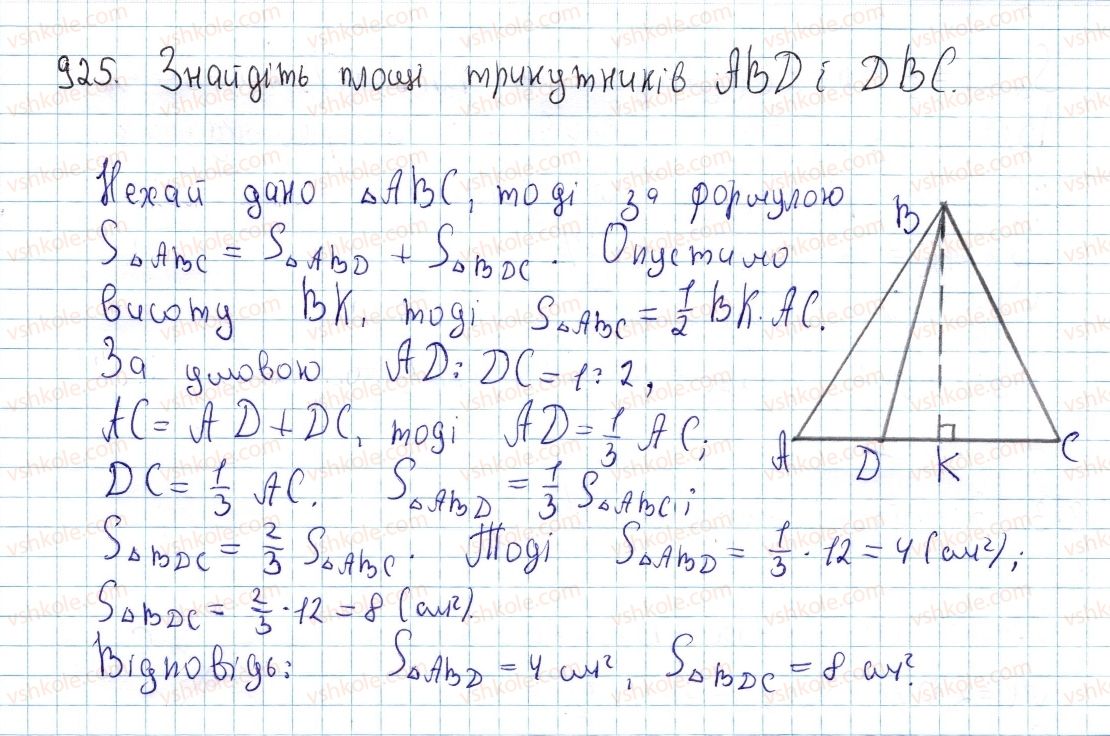 925. Знайдіть площі трикутників ABD і DBC.
Нехай дано △ABC, тоді за формулою
S△ABC = S△ABD + S△BDC. Опустимо
висоту BK, тоді S△ABC = 1/2 BK·AC.
За умовою AD:DC = 1:2,
AC = AD + DC, тоді AD = 1/3 AC;
DC = 1/3 AC. S△ABD = 1/3 S△ABC;
S△BDC = 2/3 S△ABC. Тоді S△ABD = 1/3 · 12 = 4 (см²);
S△BDC = 2/3 · 12 = 8 (см²).
Відповідь: S△ABD = 4 см², S△BDC = 8 см².
B
A D K C
vshkole.com